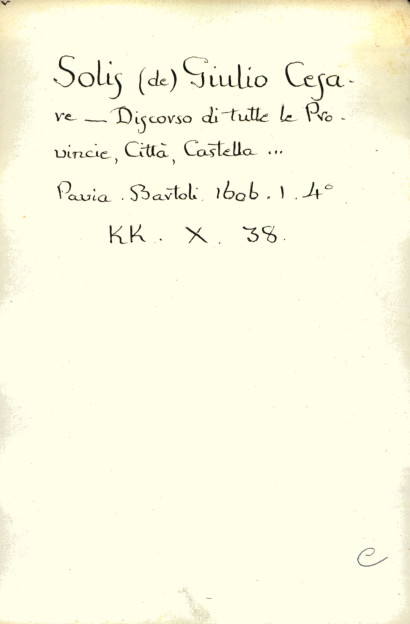 Solis (de) Giulio Cesa-
re — Discorso di tutte le Pro-
vincie, Città, Castella ...
Pavia. Bartoli. 1606. 1. 4°
KK. X. 38.
C